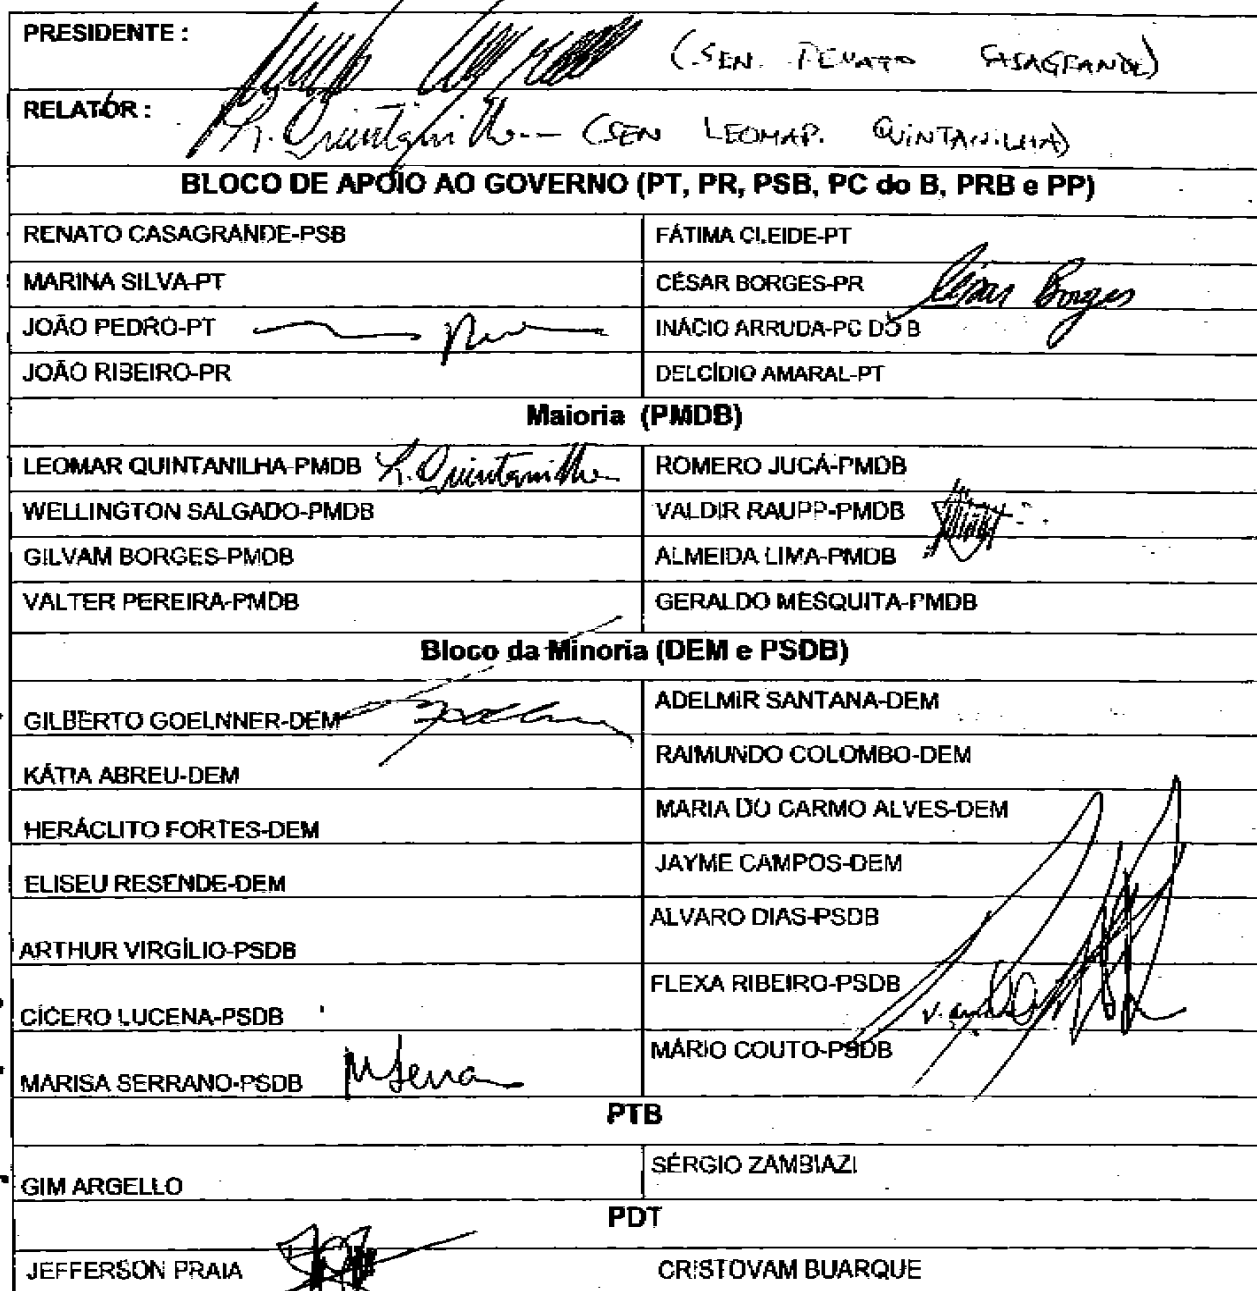 PRESIDENTE : (SEN. RENATO CASAGRANDE)
RELATOR : L. Quintanilha (SEN LEOMAR QUINTANILHA)
BLOCO DE APOIO AO GOVERNO (PT, PR, PSB, PC do B, PRB e PP)
RENATO CASAGRANDE-PSB FÁTIMA CLEIDE-PT
MARINA SILVA-PT CÉSAR BORGES-PR César Borges
JOÃO PEDRO-PT INÁCIO ARRUDA-PC DO B
JOÃO RIBEIRO-PR DELCÍDIO AMARAL-PT
Maioria (PMDB)
LEOMAR QUINTANILHA-PMDB L. Quintanilha ROMERO JUCÁ-PMDB
WELLINGTON SALGADO-PMDB VALDIR RAUPP-PMDB
GILVAM BORGES-PMDB ALMEIDA LIMA-PMDB
VALTER PEREIRA-PMDB GERALDO MESQUITA-PMDB
Bloco da Minoria (DEM e PSDB)
GILBERTO GOELNNER-DEM ADELMIR SANTANA-DEM
KÁTIA ABREU-DEM RAIMUNDO COLOMBO-DEM
HERÁCLITO FORTES-DEM MARIA DO CARMO ALVES-DEM
ELISEU RESENDE-DEM JAYME CAMPOS-DEM
ARTHUR VIRGÍLIO-PSDB ALVARO DIAS-PSDB
CÍCERO LUCENA-PSDB FLEXA RIBEIRO-PSDB
MARISA SERRANO-PSDB MÁRIO COUTO-PSDB
PTB
GIM ARGELLO SÉRGIO ZAMBIAZI
PDT
JEFFERSON PRAIA CRISTOVAM BUARQUE